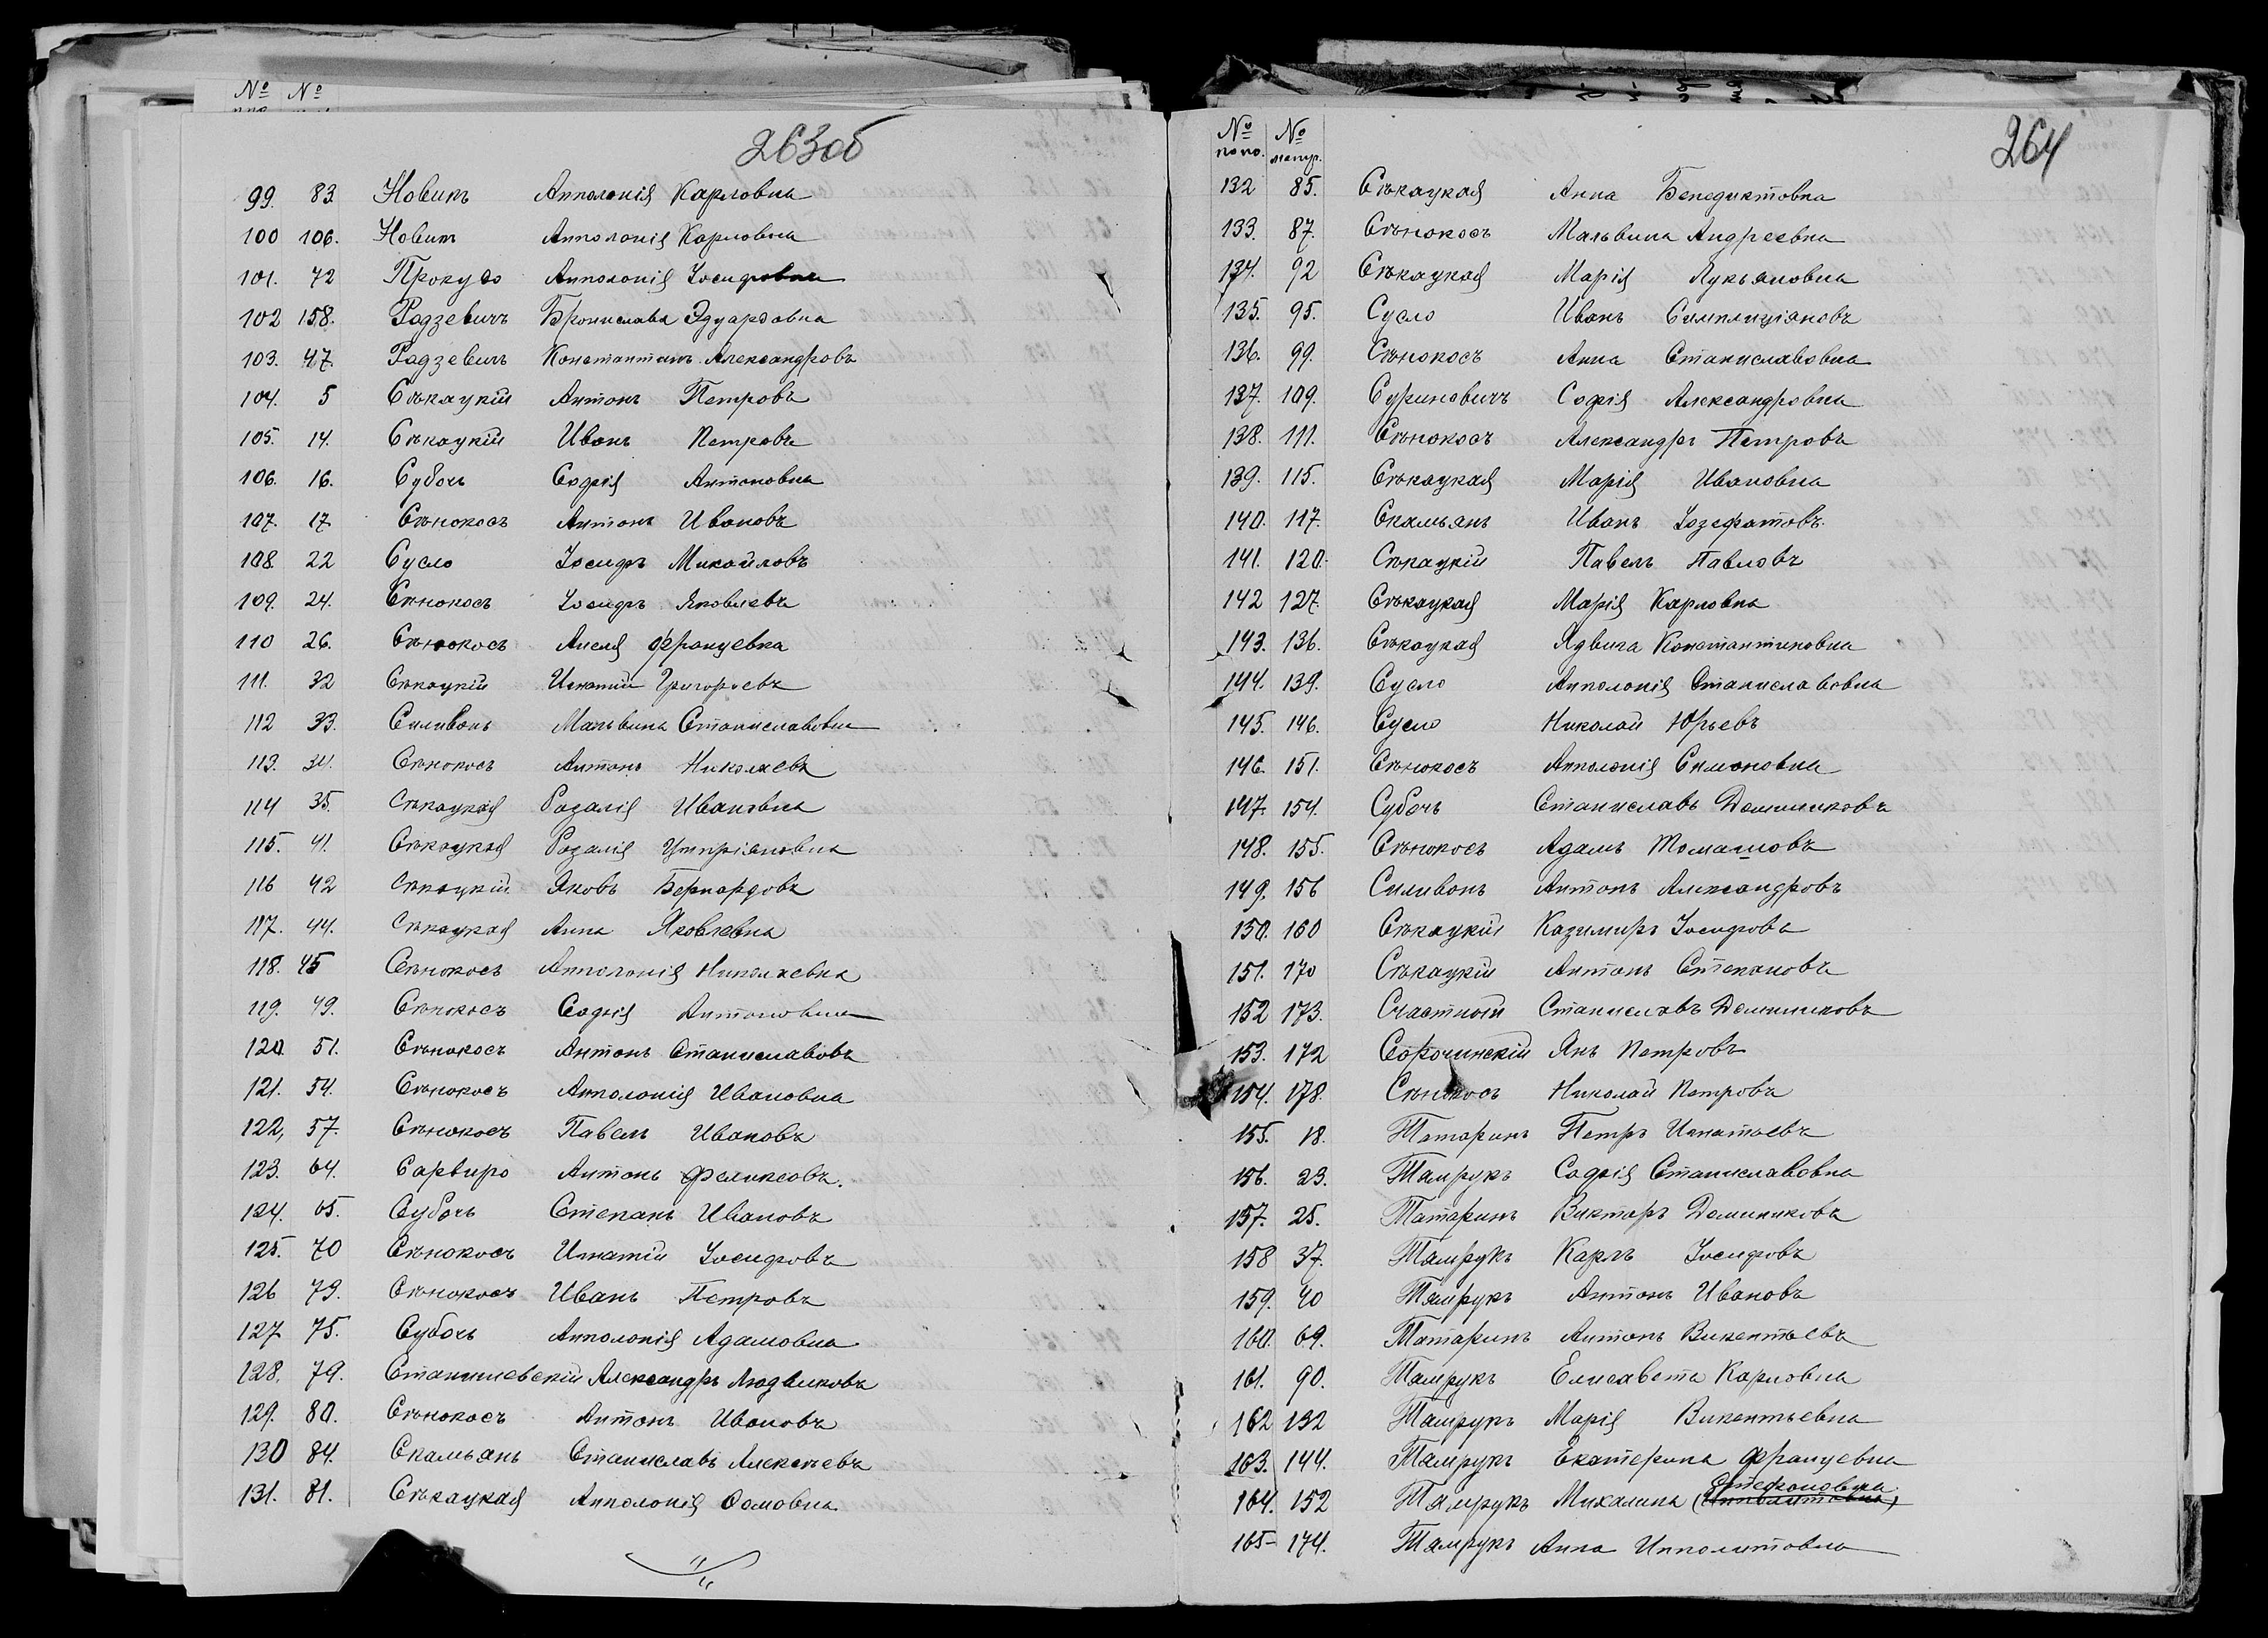 № №
263об
99. 83. Новикъ Апполонія Карловна
100 106. Новикъ Апполонія Карловна
101. 72 Прокузо Апполонія Іосифовна
102 158. Радзевичъ Брониславa Эдуардовна
103. 47. Радзевичъ Константинъ Александровъ
104. 5 Сѣкацкій Антонъ Петровъ
105. 14. Сѣкацкій Иванъ Петровъ
106. 16. Субочъ Софія Антоновна
107. 17. Сѣнокосъ Антонъ Ивановъ
108 22 Сусло Іосифъ Михайловъ
109. 24. Сѣнокосъ Іосифъ Яковлевъ
110 26. Сѣнокосъ Анеля Францевна
111. 32 Сѣкацкій Игнатій Григорьевъ
112 33. Силивонъ Мальвина Станиславовна
113. 34. Сѣнокосъ Антонъ Николаевъ
114 35. Сѣкацкая Розалія Ивановна
115. 41. Сѣкацкая Розалія Ципріановна
116 42 Сѣкацкій Яковъ Бернардовъ
117. 44. Сѣкацкая Анна Яковлевна
118. 45 Сѣнокосъ Апполонія Николаевна
119. 49. Сѣнокосъ Софія Антоновна
120. 51. Сѣнокосъ Антонъ Станиславовъ
121. 54. Сѣнокосъ Апполонія Ивановна
122, 57. Сѣнокосъ Павелъ Ивановъ
123. 64. Сарвиро Антонъ Феликсовъ.
124. 65. Субочъ Степанъ Ивановъ
125. 70 Сѣнокосъ Игнатій Іосифовъ
126 73. Сѣнокосъ Иванъ Петровъ
127 75. Субочъ Апполонія Адамовна
128, 79. Станишевскій Александръ Людвиковъ
129. 80. Сѣнокосъ Антонъ Ивановъ
130 84. Скамьянъ Станиславъ Алексѣевъ
131. 81. Сѣкацкая Апполонія Ѳомовна
264
№ по по. № метр.
132 85. Сѣкацкая Анна Бенедиктовна
133. 87. Сѣнокосъ Мальвина Андреевна
134. 92 Сѣкацкая Марія Лукьяновна
135. 95. Сусло Иванъ Симплиціановъ
136. 99. Сѣнокосъ Анна Станиславовна
137. 109. Суриновичъ Софія Александровна
138. 111. Сѣнокосъ Александръ Петровъ
139. 115. Сѣкацкая Марія Ивановна
140. 117. Скамьянъ Иванъ Іозефатовъ.
141. 120. Сѣкацкій Павелъ Павловъ
142 127. Сѣкацкая Марія Карловна
143. 136. Сѣкацкая Ядвига Константиновна
144. 139. Сусло Апполонія Станиславовна
145. 146. Сусло Николай Юрьевъ
146. 151. Сѣнокосъ Апполонія Симоновна
147. 154. Субочъ Станиславъ Доминиковъ
148. 155. Сѣнокосъ Адамъ Томашовъ
149. 156 Силивонъ Антонъ Александровъ
150. 160 Сѣкацкій Казимиръ Іосифовъ
151. 170 Сѣкацкій Антонъ Степановъ
152 173. Счастный Станиславъ Доминиковъ
153. 172 Сорочинскій Янъ Петровъ
154. 178. Сѣнокосъ Николай Петровъ
155. 18. Татаринъ Петръ Игнатьевъ
156. 23. Тамрукъ Софія Станиславовна
157. 25. Татаринъ Викторъ Доминиковъ
158 37. Тамрукъ Карлъ Іосифовъ
159. 40 Тамрукъ Антонъ Ивановъ
160. 69. Татаринъ Антонъ Викентьевъ
161. 90. Тамрукъ Елисавета Карловна
162 132 Тамрукъ Марія Викентьевна
163. 144. Тамрукъ Екатерина Францевна
164. 152 Тамрукъ Михалина (Ипполитовна) Стефановна
165- 174. Тамрукъ Анна Ипполитовна